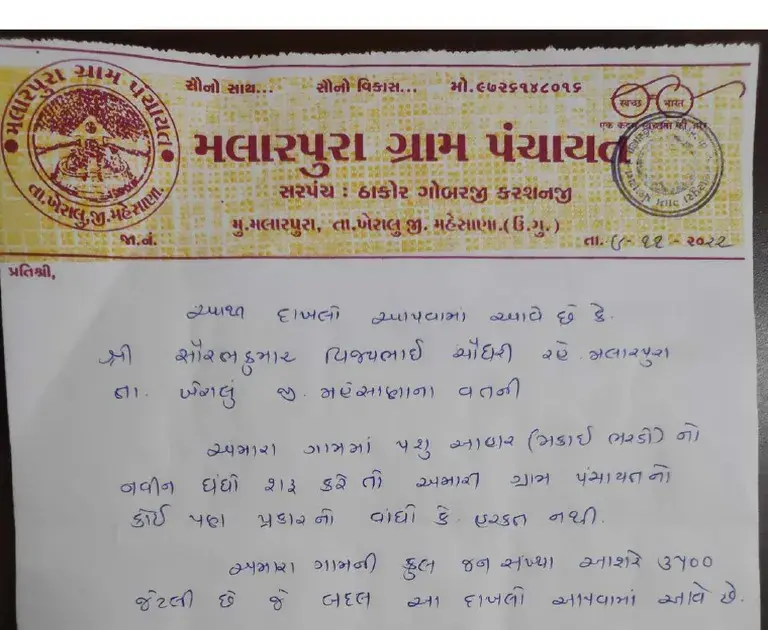 મલારપુરા ગ્રામ પંચાયત
તા.ખેરાલુ,જી.મહેસાણા.
સૌનો સાથ... સૌનો વિકાસ... મો.૯૭૨૬૧૪૮૦૧૬
સ્વચ્છ ભારત
एक कदम स्वच्छता की ओर
મલારપુરા ગ્રામ પંચાયત
સરપંચ : ઠાકોર ગોબરજી કરશનજી
મુ.મલારપુરા, તા.ખેરાલુ જી. મહેસાણા.(ઉ.ગુ.)
જા.નં. તા. ૯-૧૧-૨૦૨૨
પ્રતિશ્રી,
આથી દાખલો આપવામાં આવે છે કે.
શ્રી સૌરભકુમાર વિજયભાઈ ચૌધરી રહે. મલારપુરા
તા. ખેરાલું જી. મહેસાણાના વતની
અમારા ગામમાં પશુ આહાર (મકાઈ ભરડો) નો
નવીન ધંધો શરૂ કરે તો અમારી ગ્રામ પંચાયતનો
કોઈ પણ પ્રકારનો વાંધો કે હરકત નથી.
અમારા ગામની કુલ જન સંખ્યા આશરે ૩૫૦૦
જેટલી છે જે બદલ આ દાખલો આપવામાં આવે છે.